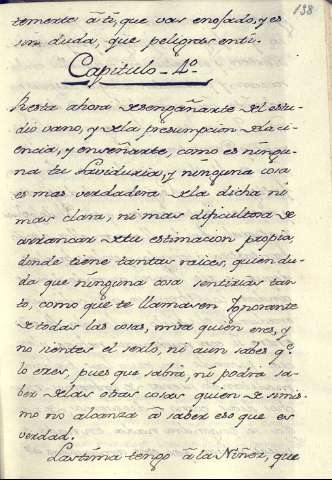 138
temerte â tì, que vas enojado, y es
sin duda, que peligras en tì.
Capitulo - 4º.
Resta ahora desengañarte del estu-
dio vano, y dela presumpcion dela ci-
encia, y enseñarte, como es ningu-
na tu Saviduria, y ninguna cosa
es mas verdadera dela dicha ni
mas clara, ni mas dificultosa de
arrancar detu estimacion propia,
donde tiene tantas raices, quien du-
da que ninguna cosa sentirias tan-
to, como que te llamasen Ignorante
de todas las cosas, mira quien eres, y
no sientes el serlo, ni aun sabes q.e
lo eres, pues que sabrá, ni podrá sa-
ber delas otras cosas quien de simis-
mo no alcanza â saber eso que es
verdad.
Lastima tengo â la Niñez, que